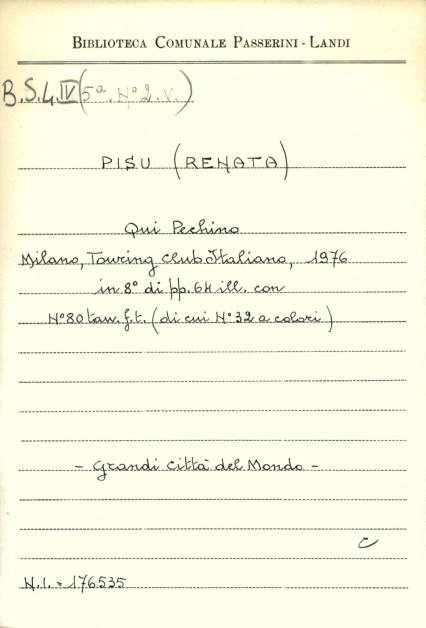 BIBLIOTECA COMUNALE PASSERINI - LANDI
B.S.L. IV (5ª. N° 2. V.)
PISU (RENATA)
Qui Pechino
Milano, Touring Club Italiano, 1976
in 8° di pp. 64 ill. con
N° 80 tav. f. t. (di cui N° 32 a colori)
- Grandi Città del Mondo -
C
N.I. = 176535